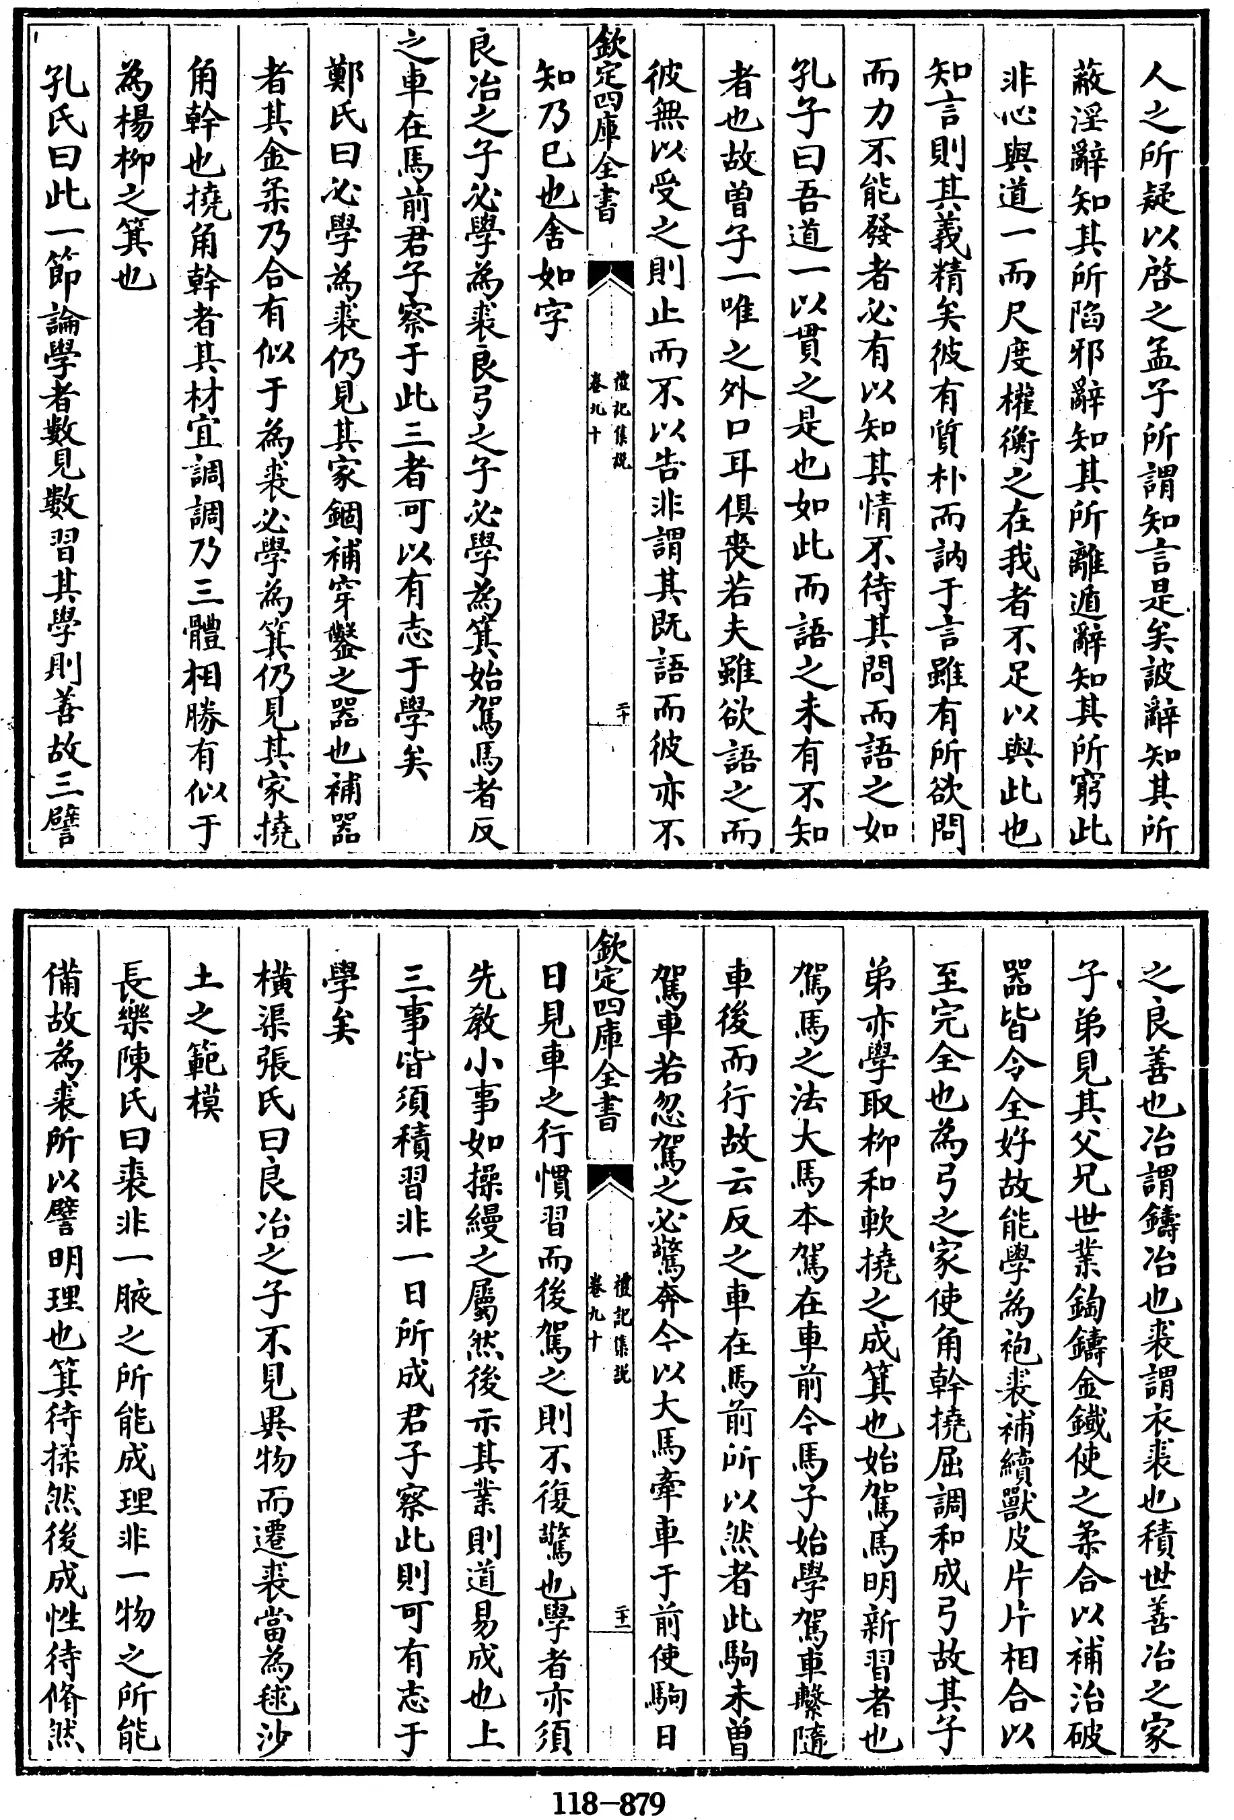 人之所疑以啓之孟子所謂知言是矣詖辭知其所
蔽淫辭知其所陷邪辭知其所離遁辭知其所窮此
非心與道一而尺度權衡之在我者不足以與此也
知言則其義精矣彼有質朴而訥于言雖有所欲問
而力不能發者必有以知其情不待其問而語之如
孔子曰吾道一以貫之是也如此而語之未有不知
者也故曽子一唯之外口耳俱喪若夫雖欲語之而
彼無以受之則止而不以告非謂其既語而彼亦不
欽定四庫全書
禮記集說
卷九十
二十
知乃已也舍如字
良冶之子必學為裘良弓之子必學為箕始駕馬者反
之車在馬前君子察于此三者可以有志于學矣
鄭氏曰必學為裘仍見其家錮補穿鑿之器也補器
者其金柔乃合有似于為裘必學為箕仍見其家撓
角幹也撓角幹者其材宜調調乃三體相勝有似于
為楊柳之箕也
孔氏曰此一節論學者數見數習其學則善故三譬
之良善也冶謂鑄冶也裘謂衣裘也積世善冶之家
子弟見其父兄世業鉤鑄金鐵使之柔合以補治破
器皆令全好故能學為袍裘補續獸皮片片相合以
至完全也為弓之家使角幹撓屈調和成弓故其子
弟亦學取柳和軟撓之成箕也始駕馬明新習者也
駕馬之法大馬本駕在車前今馬子始學駕車繫隨
車後而行故云反之車在馬前所以然者此駒未曽
駕車若忽駕之必驚奔今以大馬牽車于前使駒日
欽定四庫全書
禮記集說
卷九十
二十一
日見車之行慣習而後駕之則不復驚也學者亦須
先敎小事如操縵之屬然後示其業則道易成也上
三事皆須積習非一日所成君子察此則可有志于
學矣
橫渠張氏曰良冶之子不見異物而遷裘當為毬沙
土之範模
長樂陳氏曰裘非一腋之所能成理非一物之所能
備故為裘所以譬明理也箕待揉然後成性待脩然
118-879